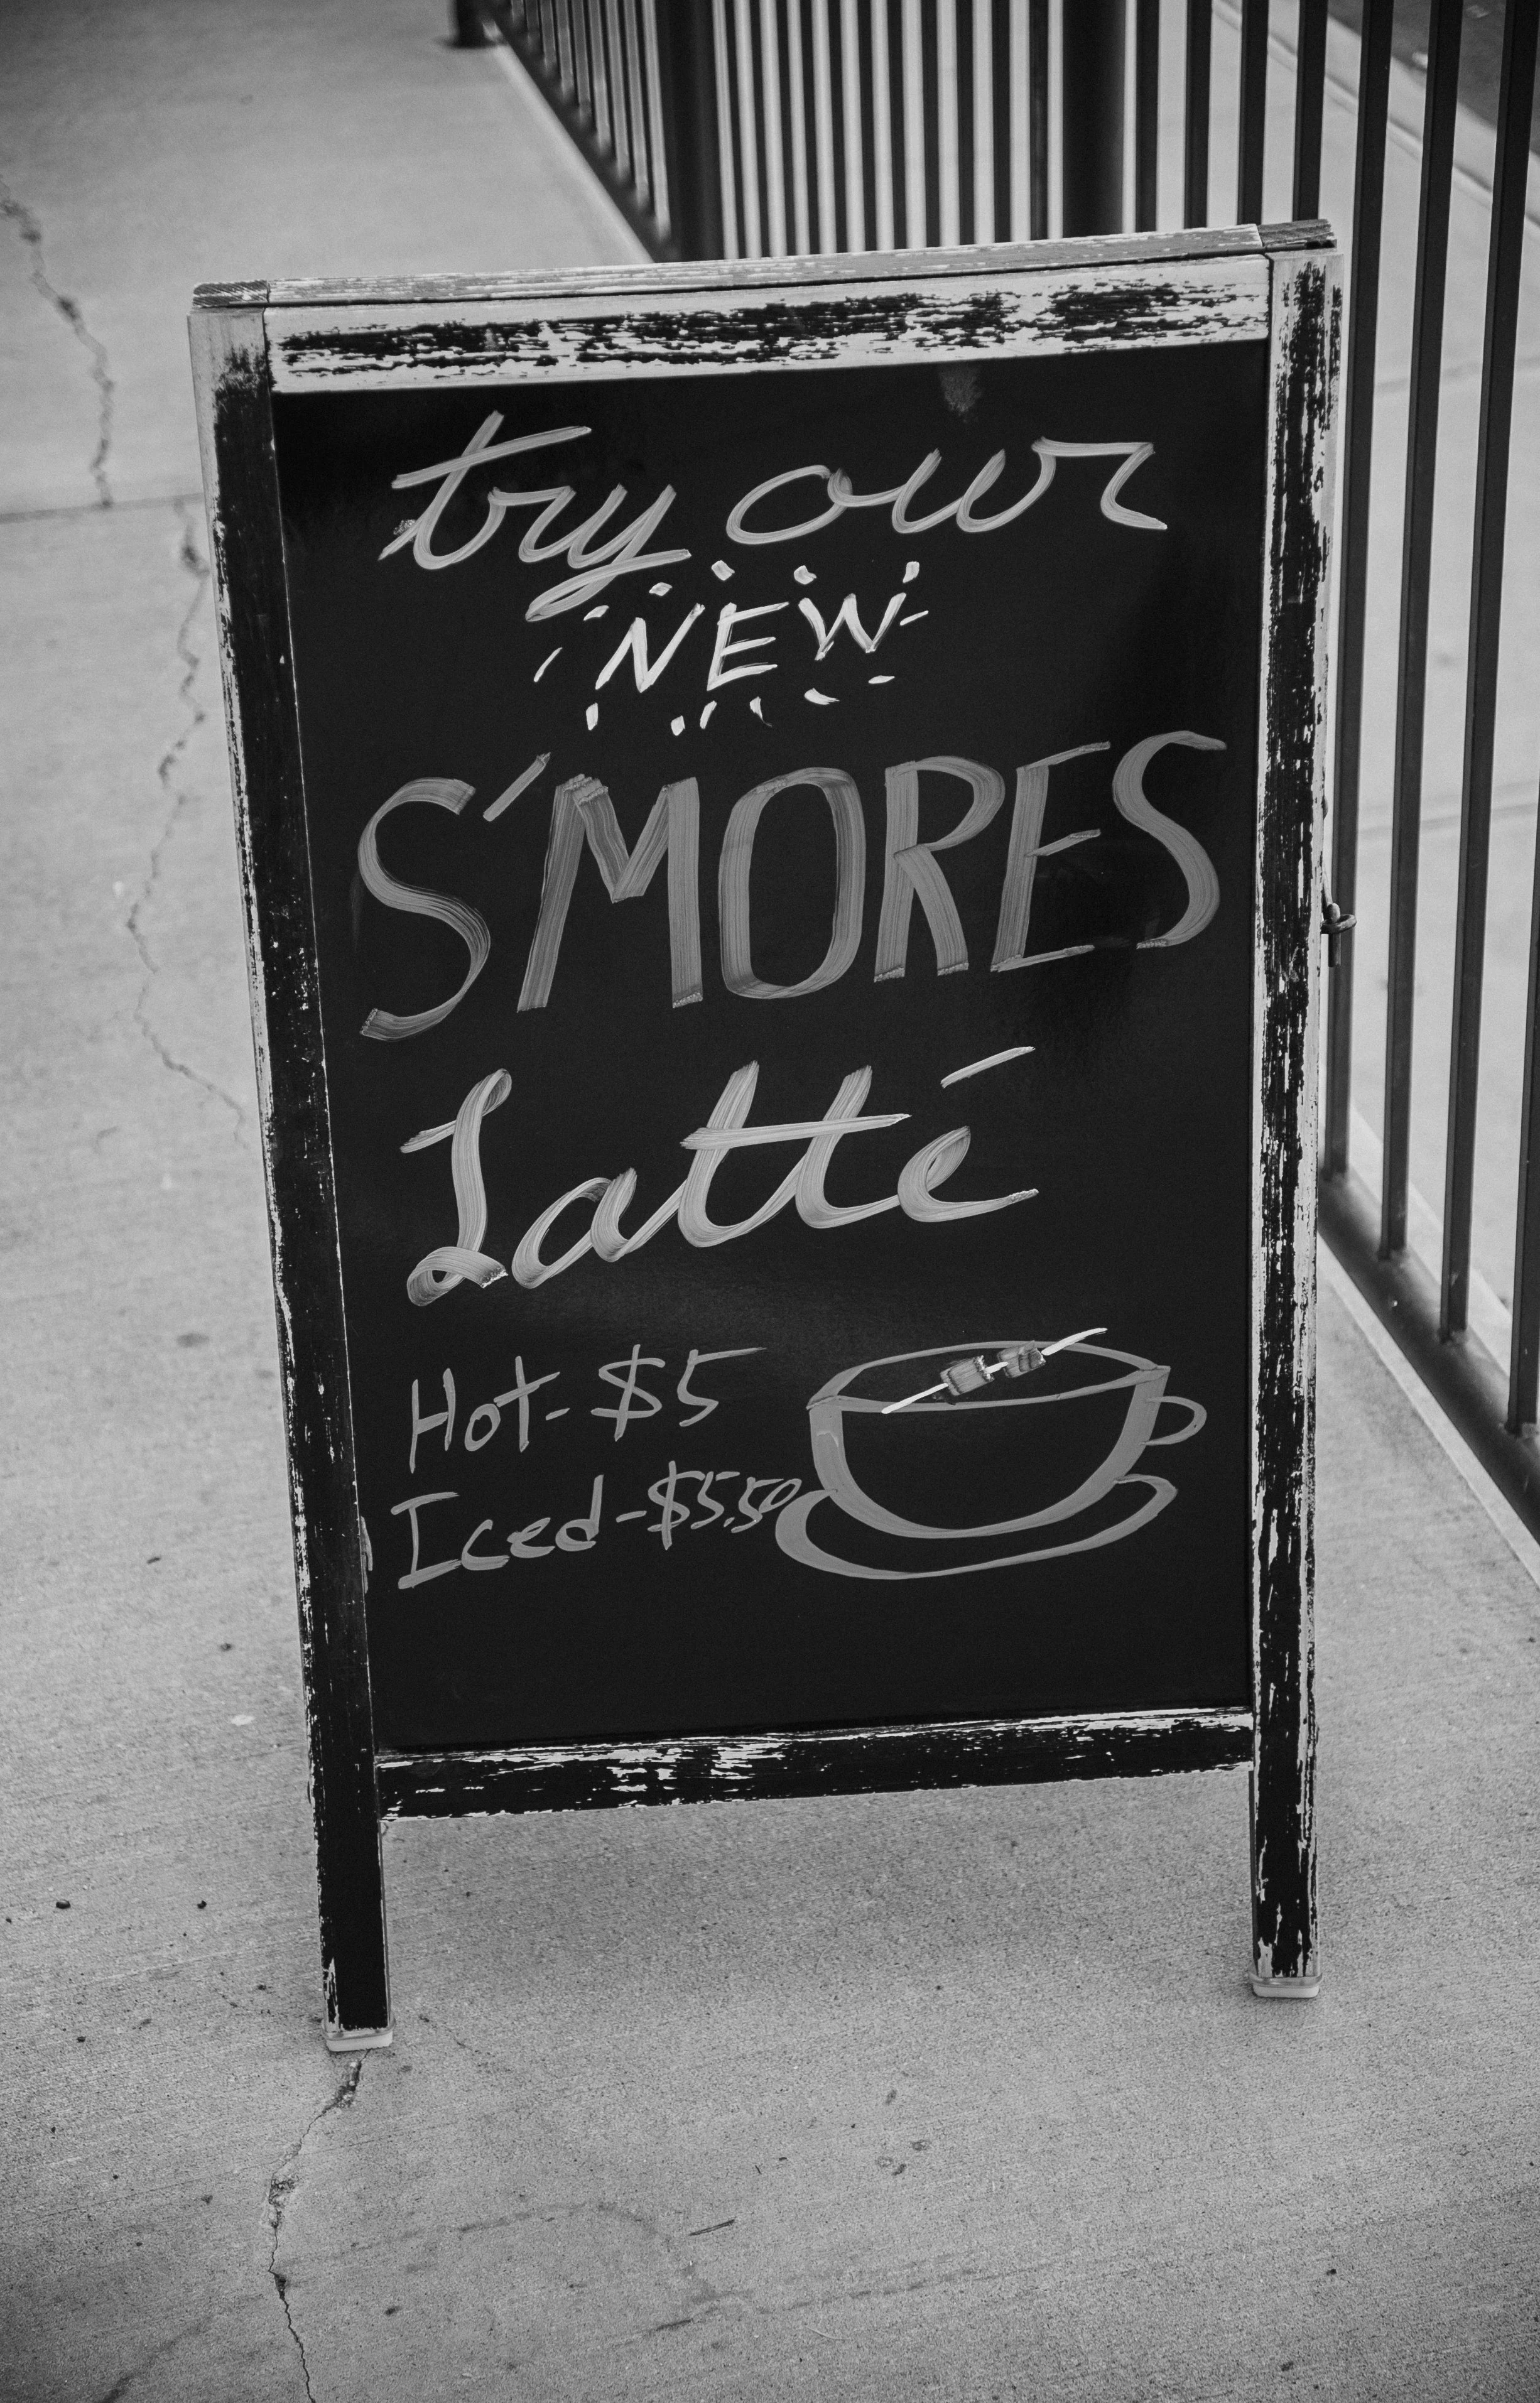 try our
NEW
S'MORES
Latté
Hot-$5
Iced-$5.50